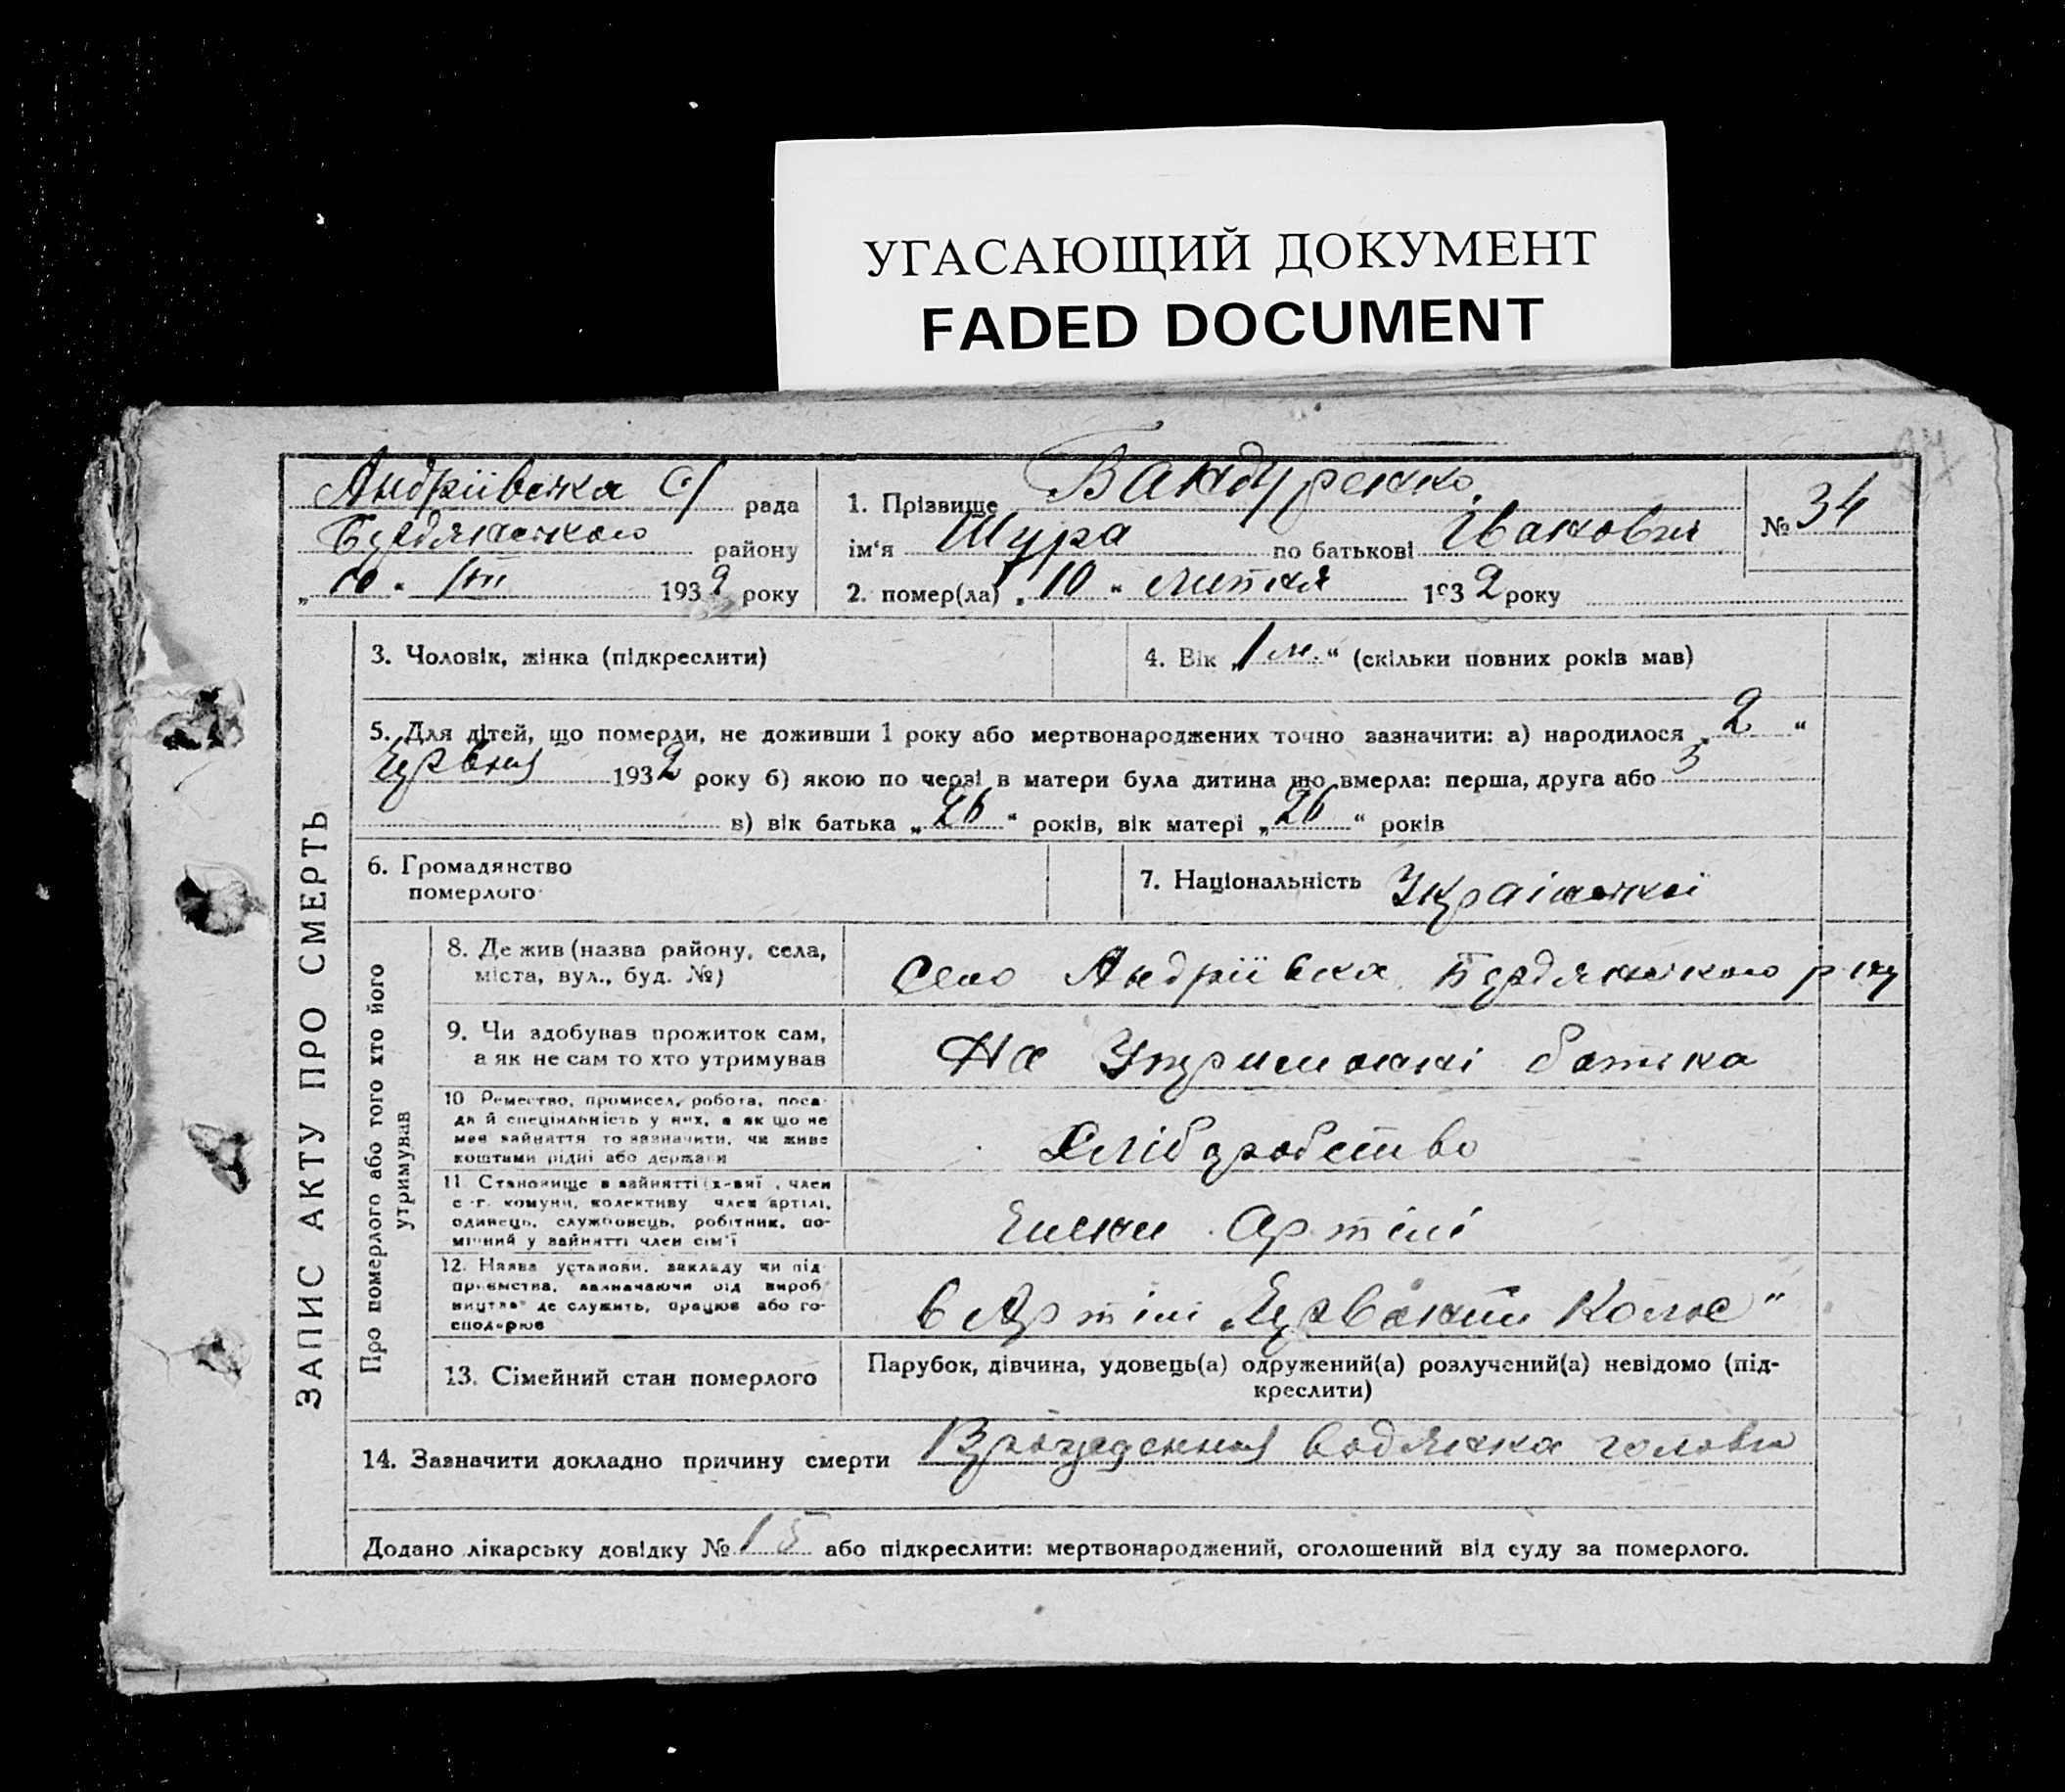 УГАСАЮЩИЙ ДОКУМЕНТ
FADED DOCUMENT
Андріївська С/ рада
Бердянського району
„10“ VII 1932 року
1. Прізвище Бандуренко
ім‘я Шура по батькові Іванович
2. помер(ла) „10“ липня 1932 року
№ 34
ЗАПИС АКТУ ПРО СМЕРТЬ
3. Чоловік, жінка (підкреслити)
4. Вік „1 м.“ (скільки повних років мав)
5. Для дітей, що померли, не доживши 1 року або мертвонароджених точно зазначити: а) народилося „2“
Червня 1932 року б) якою по черзі в матери була дитина що вмерла: перша, друга або 3
в) вік батька „26“ років, вік матері „26“ років
6. Громадянство
померлого
7. Національність Українськ
Про померлого або того хто його
утримував
8. Де жив (назва району, села,
міста, вул., буд. №)
Село Андріївка Бердянського р-ну
9. Чи здобував прожиток сам,
а як не сам то хто утримував
На Утриманні батька
10 Ремество, промисел, робота, поса-
да й спеціальність у них, а як що не
мав зайняття то зазначити, чи живе
коштами рідні або держави
Хліборобство
11. Становище в зайнятті (х-в , член
с.-г. комуни, колективу член артілі,
одинець, службовець, робітник, по-
мічний у зайнятті член сім‘ї
Члени Артілі
12. Назва установи, закладу чи під-
приємства, зазначаючи рід вироб-
ництва де служить, працює або го-
сподарює
в Артілі „Червоний Колос“
13. Сімейний стан померлого
Парубок, дівчина, удовець(а) одружений(а) розлучений(а) невідомо (під-
креслити)
14. Зазначити докладно причину смерти водянка голови
Додано лікарську довідку № 15 або підкреслити: мертвонароджений, оголошений від суду за померлого.